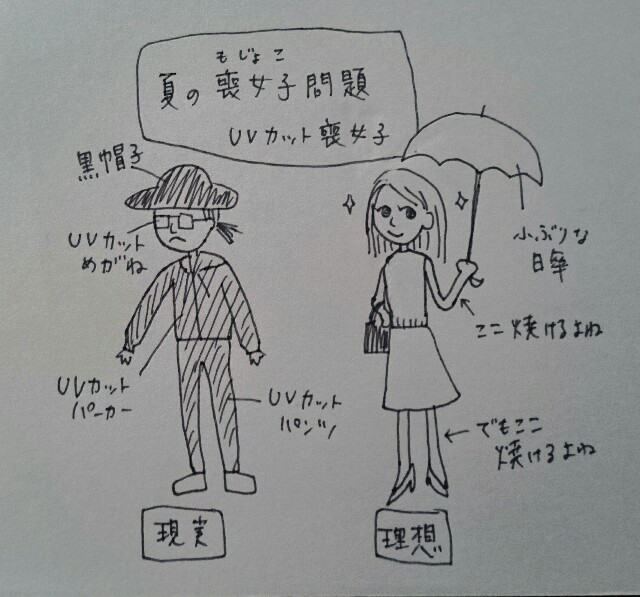 もじょこ
夏の喪女子問題
UVカット喪女子
黒帽子
UVカット
めがね
UVカット
パーカー
UVカット
パンツ
現実
小ぶりな
日傘
ここ焼けるよね
でもここ
焼けるよね
理想